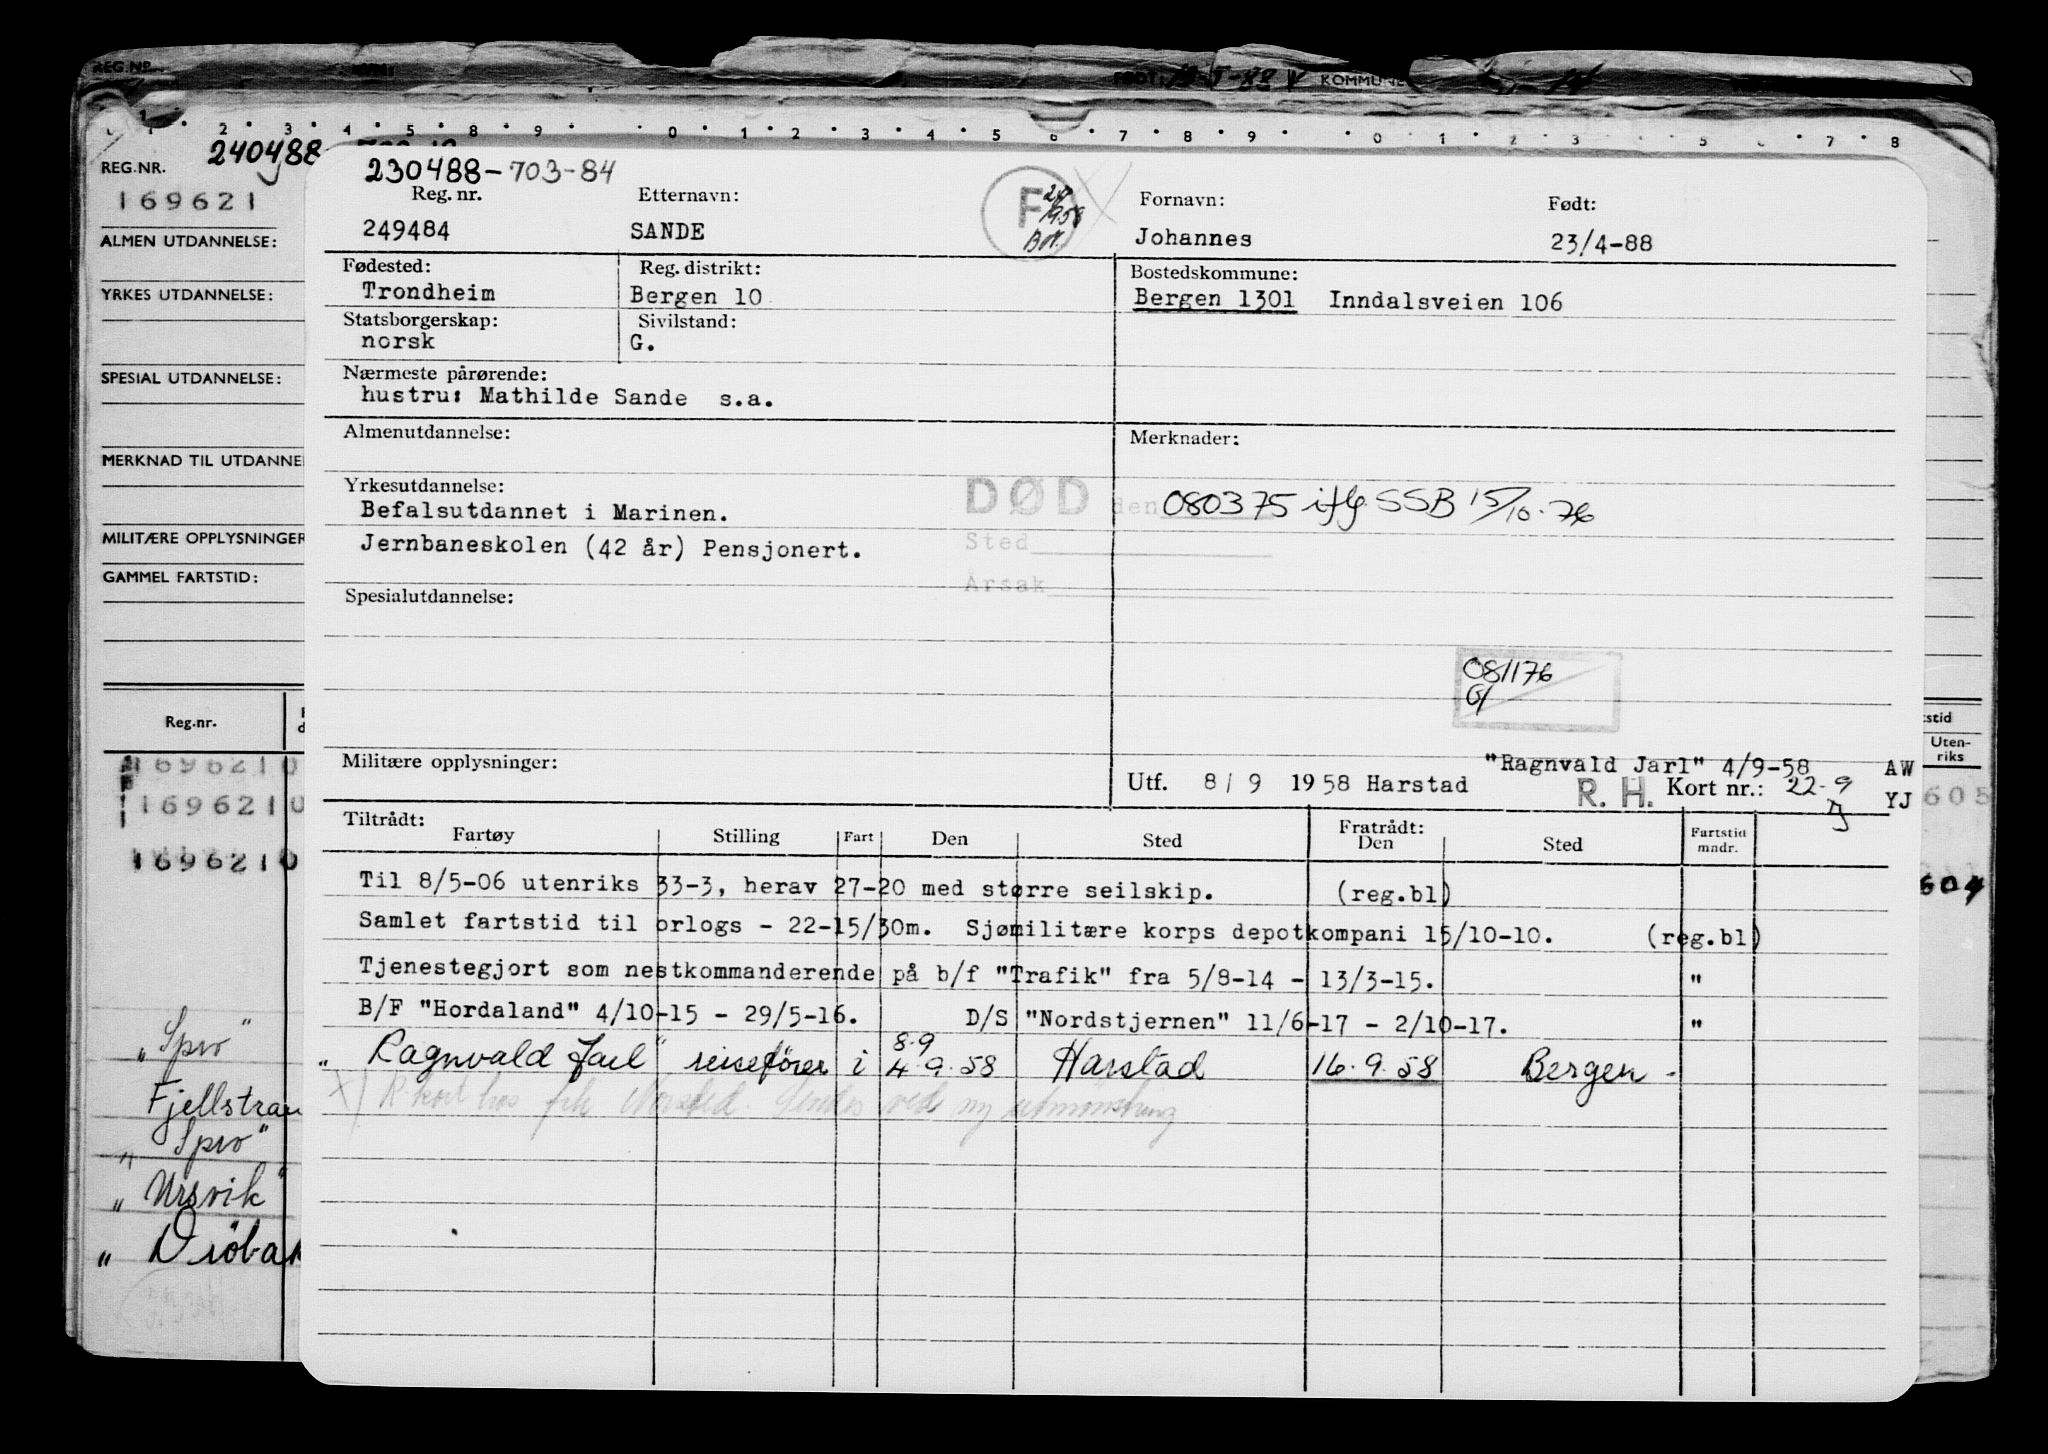 REG.NR.
FØDT: KOMMUNE
1 2 3 4 5 8 9 0 1 2 3 4 5 6 7 8 9 0 1 2 3 5 6 7 8
240488
REG.NR.
169621
ALMEN UTDANNELSE:
YRKES UTDANNELSE:
SPESIAL UTDANNELSE:
MERKNAD TIL UTDANNE
MILITÆRE OPPLYSNINGER
GAMMEL FARTSTID:
Reg.nr.
1696210
1696210
1696210
„Spro"
Fjellstran
„Spro"
„Ursvik"
„Drøbak
230488-703-84
Reg. nr. Etternavn: F Fornavn: Født:
249484 SANDE 1958 Johannes 23/4-88
Fødested: Reg. distrikt: Bostedskommune:
Trondheim Bergen 10 Bergen 1301 Inndalsveien 106
Statsborgerskap: Sivilstand:
norsk G.
Nærmeste pårørende:
hustru: Mathilde Sande s.a.
Almenutdannelse: Merknader:
Yrkesutdannelse:
Befalsutdannet i Marinen. DØD den 080375 iflg. SSB 15/10-76
Jernbaneskolen (42 år) Pensjonert. Sted
Årsak
Spesialutdannelse:
081176
Militære opplysninger: "Ragnvald Jarl" 4/9-58 AW
Utf. 8/9 1958 Harstad R. H. Kort nr.: 22-9 YJ
Tiltrådt: Fratrådt:
Fartøy Stilling Fart Den Sted Den Sted Fartstid mndr.
Til 8/5-06 utenriks 33-3, herav 27-20 med større seilskip. (reg.bl)
Samlet fartstid til orlogs - 22-15/30m. Sjømilitære korps depotkompani 15/10-10. (reg.bl)
Tjenestegjort som nestkommanderende på b/f "Trafik" fra 5/8-14 - 13/3-15. "
B/F "Hordaland" 4/10-15 - 29/5-16. D/S "Nordstjernen" 11/6-17 - 2/10-17. "
8.9
„Ragnvald Jarl" reisefører i 4.9.58 Harstad 16.9.58 Bergen -
x) R-kort hos Sendes ved ny utmønstring
tstid
Uten-
riks
605
604